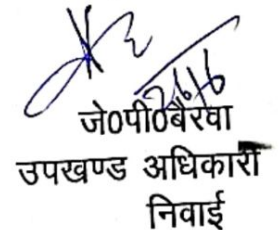 26/6
जे०पी०बैरवा
उपखण्ड अधिकारी
निवाई